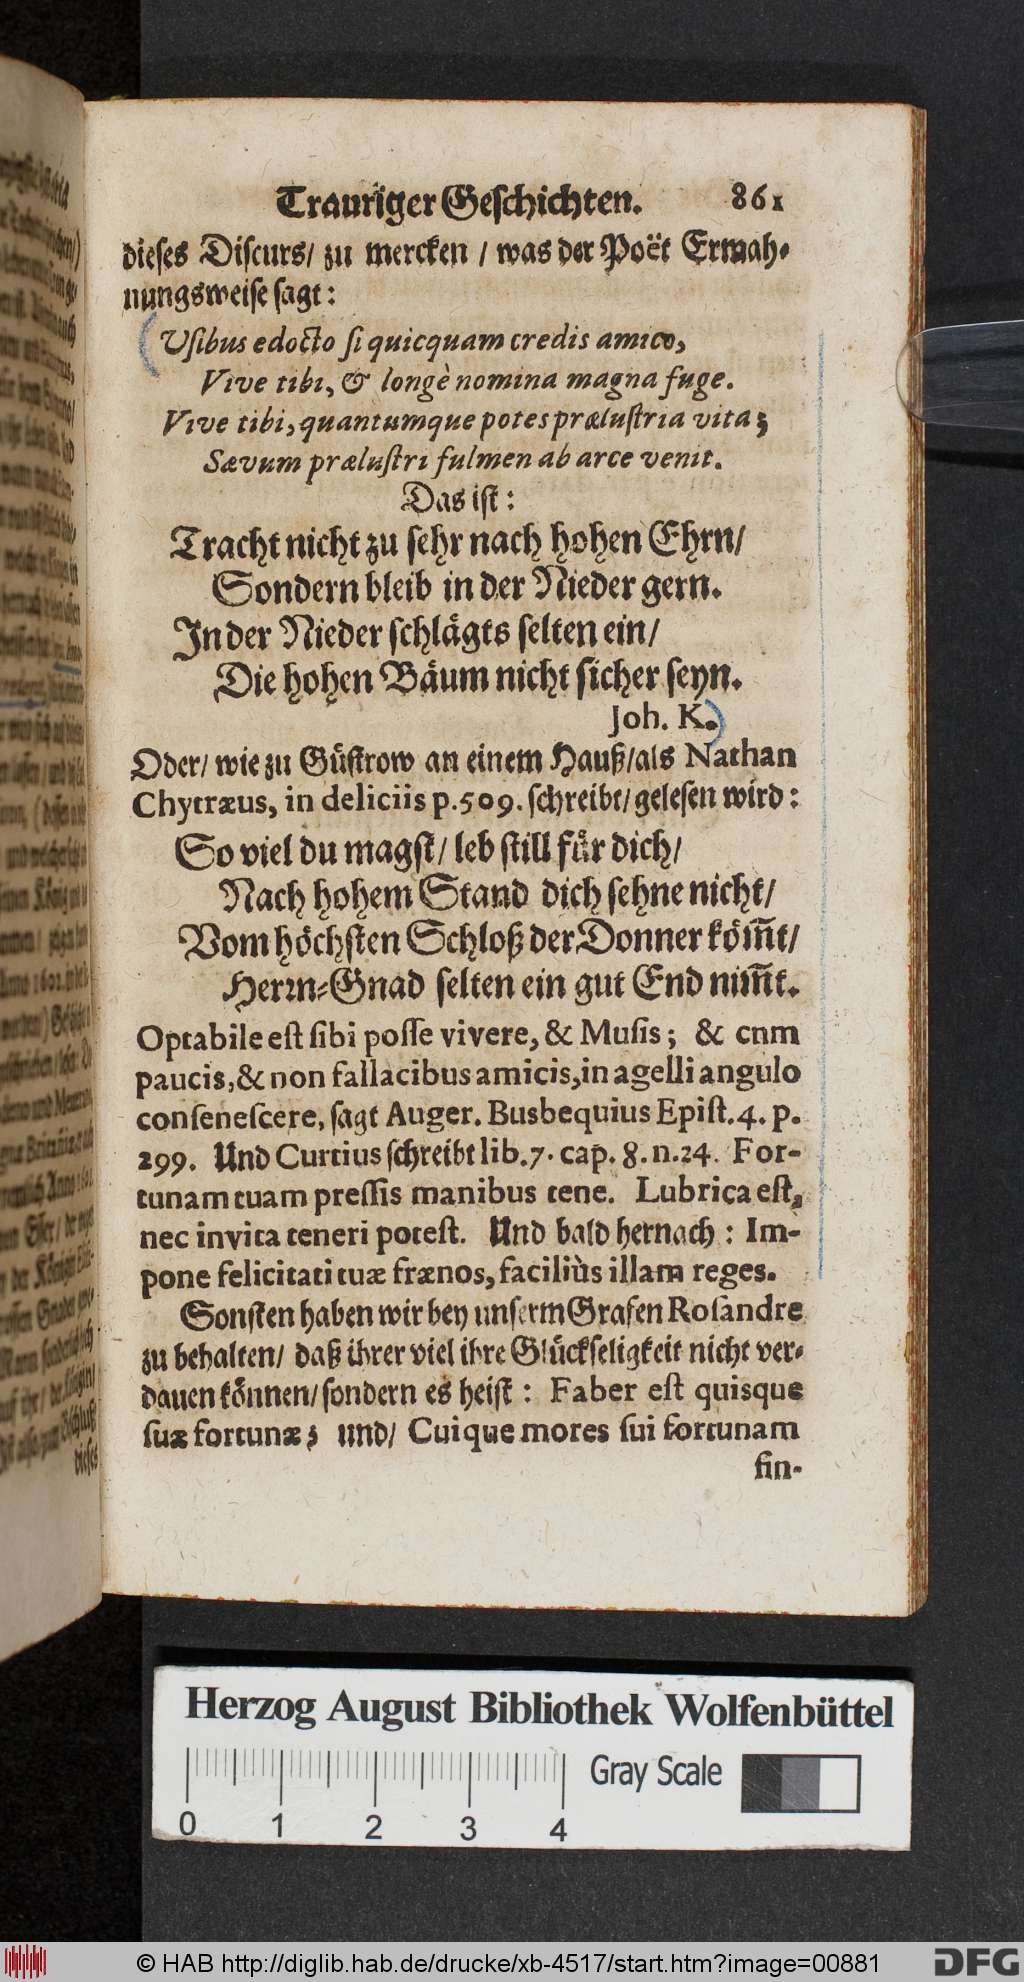 Trauriger Geschichten. 861
dieses Discurs/ zu mercken / was der Poët Ermah-
nungsweise sagt:
Vsibus edocto si quicquam credis amico,
Vive tibi, & longè nomina magna fuge.
Vive tibi, quantumque potes prælustria vita;
Sævum prælustri fulmen ab arce venit.
Das ist:
Tracht nicht zu sehr nach hohen Ehrn/
Sondern bleib in der Nieder gern.
In der Nieder schlägts selten ein/
Die hohen Bäum nicht sicher seyn.
Joh. K.
Oder/ wie zu Güstrow an einem Hauß/als Nathan
Chytræus, in deliciis p.509. schreibt/ gelesen wird:
So viel du magst/ leb still für dich/
Nach hohem Stand dich sehne nicht/
Vom höchsten Schloß der Donner köm̅t/
Herrn-Gnad selten ein gut End nim̅t.
Optabile est sibi posse vivere, & Musis; & cnm
paucis, & non fallacibus amicis, in agelli angulo
consenescere, sagt Auger. Busbequius Epist. 4. p.
299. Und Curtius schreibt lib. 7. cap. 8. n. 24. For-
tunam tuam pressis manibus tene. Lubrica est,
nec invita teneri potest. Und bald hernach: Im-
pone felicitati tuæ frænos, faciliùs illam reges.
Sonsten haben wir bey unserm Grafen Rosandre
zu behalten/ daß ihrer viel ihre Glückseligkeit nicht ver-
dauen können/ sondern es heist: Faber est quisque
suæ fortunæ; und/ Cuique mores sui fortunam
fin-
dieses
Herzog August Bibliothek Wolfenbüttel
Gray Scale
0 1 2 3 4
© HAB http://diglib.hab.de/drucke/xb-4517/start.htm?image=00881
DFG